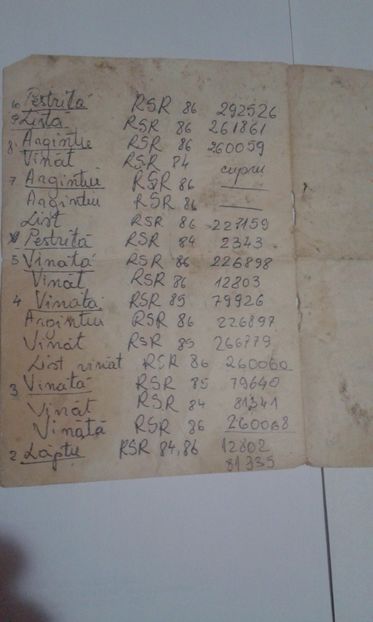 10 Pestriță RSR 86 292526
9 Listă RSR 86 261861
8 Argintie RSR 86 260059
Vinăt RSR 84
7 Argintiu RSR 86 cupru
Argintiu RSR 86
List RSR 86 227159
Pestriță RSR 84 2343
5 Vinătă RSR 86 226898
Vinăt RSR 86 12803
4 Vinătă RSR 85 79926
Argintiu RSR 86 226897
Vinăt RSR 85 266779
List vinăt RSR 86 260060
3 Vinătă RSR 85 79640
Vinăt RSR 84 81341
Vinătă RSR 86 260068
2 Lăptu RSR 84, 86 12802
81335